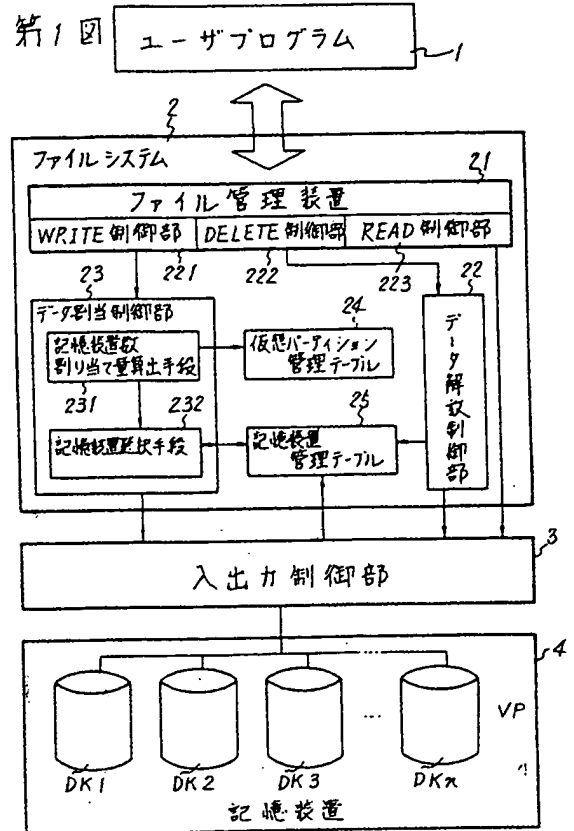 第1図
ユーザプログラム
1
2
ファイルシステム
21
ファイル管理装置
WRITE制御部
DELETE制御部
READ制御部
221
222
223
23
22
データ割当制御部
24
記憶装置数
割り当て量算出手段
仮想パーティション
管理テーブル
231
232
25
記憶装置選択手段
記憶装置
管理テーブル
データ解放制御部
3
入出力制御部
4
...
VP
DK1
DK2
DK3
...
DKn
記憶装置